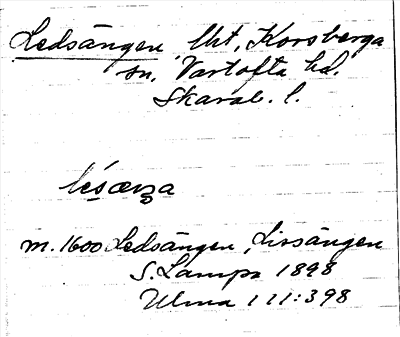 Ledsängen, lht, Korsberga
sn, Vartofta hd.
Skarab. l.
m. 1600 Ledsängen, Lissängen
S. Lampa 1898
Ulma 111:398